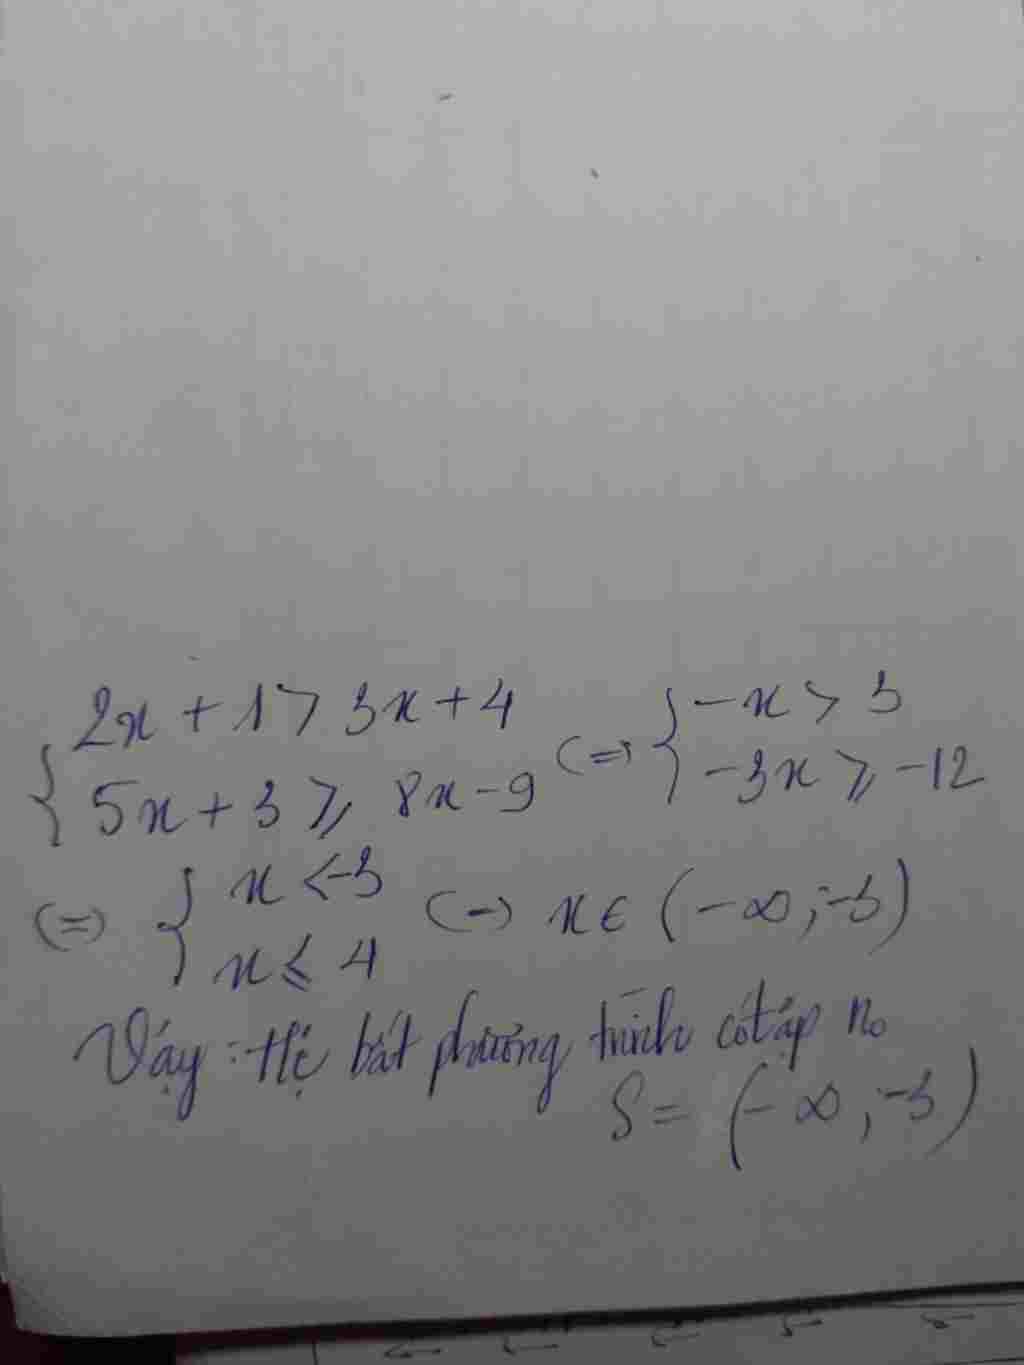 { 2x + 1 > 3x + 4
5x + 3 ⩾ 8x - 9 (=) { -x > 3
-3x ⩾ -12
(=) { x < -3
x ⩽ 4 (=) x ∈ (-∞ ; -3)
Vậy : Hệ bất phương trình có tập no
S = (-∞ ; -3)